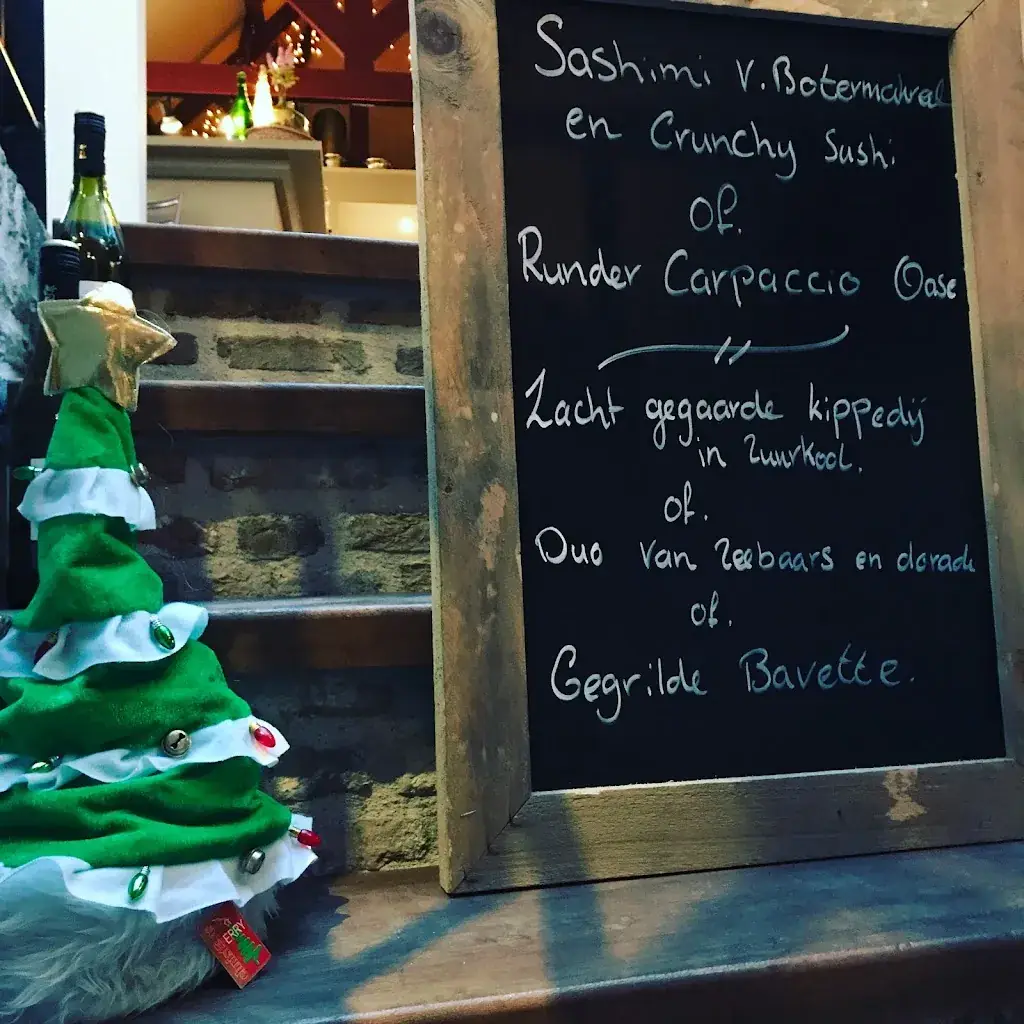 Sashimi v. Botermakreel
en Crunchy Sushi
of.
Runder Carpaccio Oase
Zacht gegaarde kippedij
in Zuurkool.
of.
Duo van Zeebaars en dorade
of.
Gegrilde Bavette.